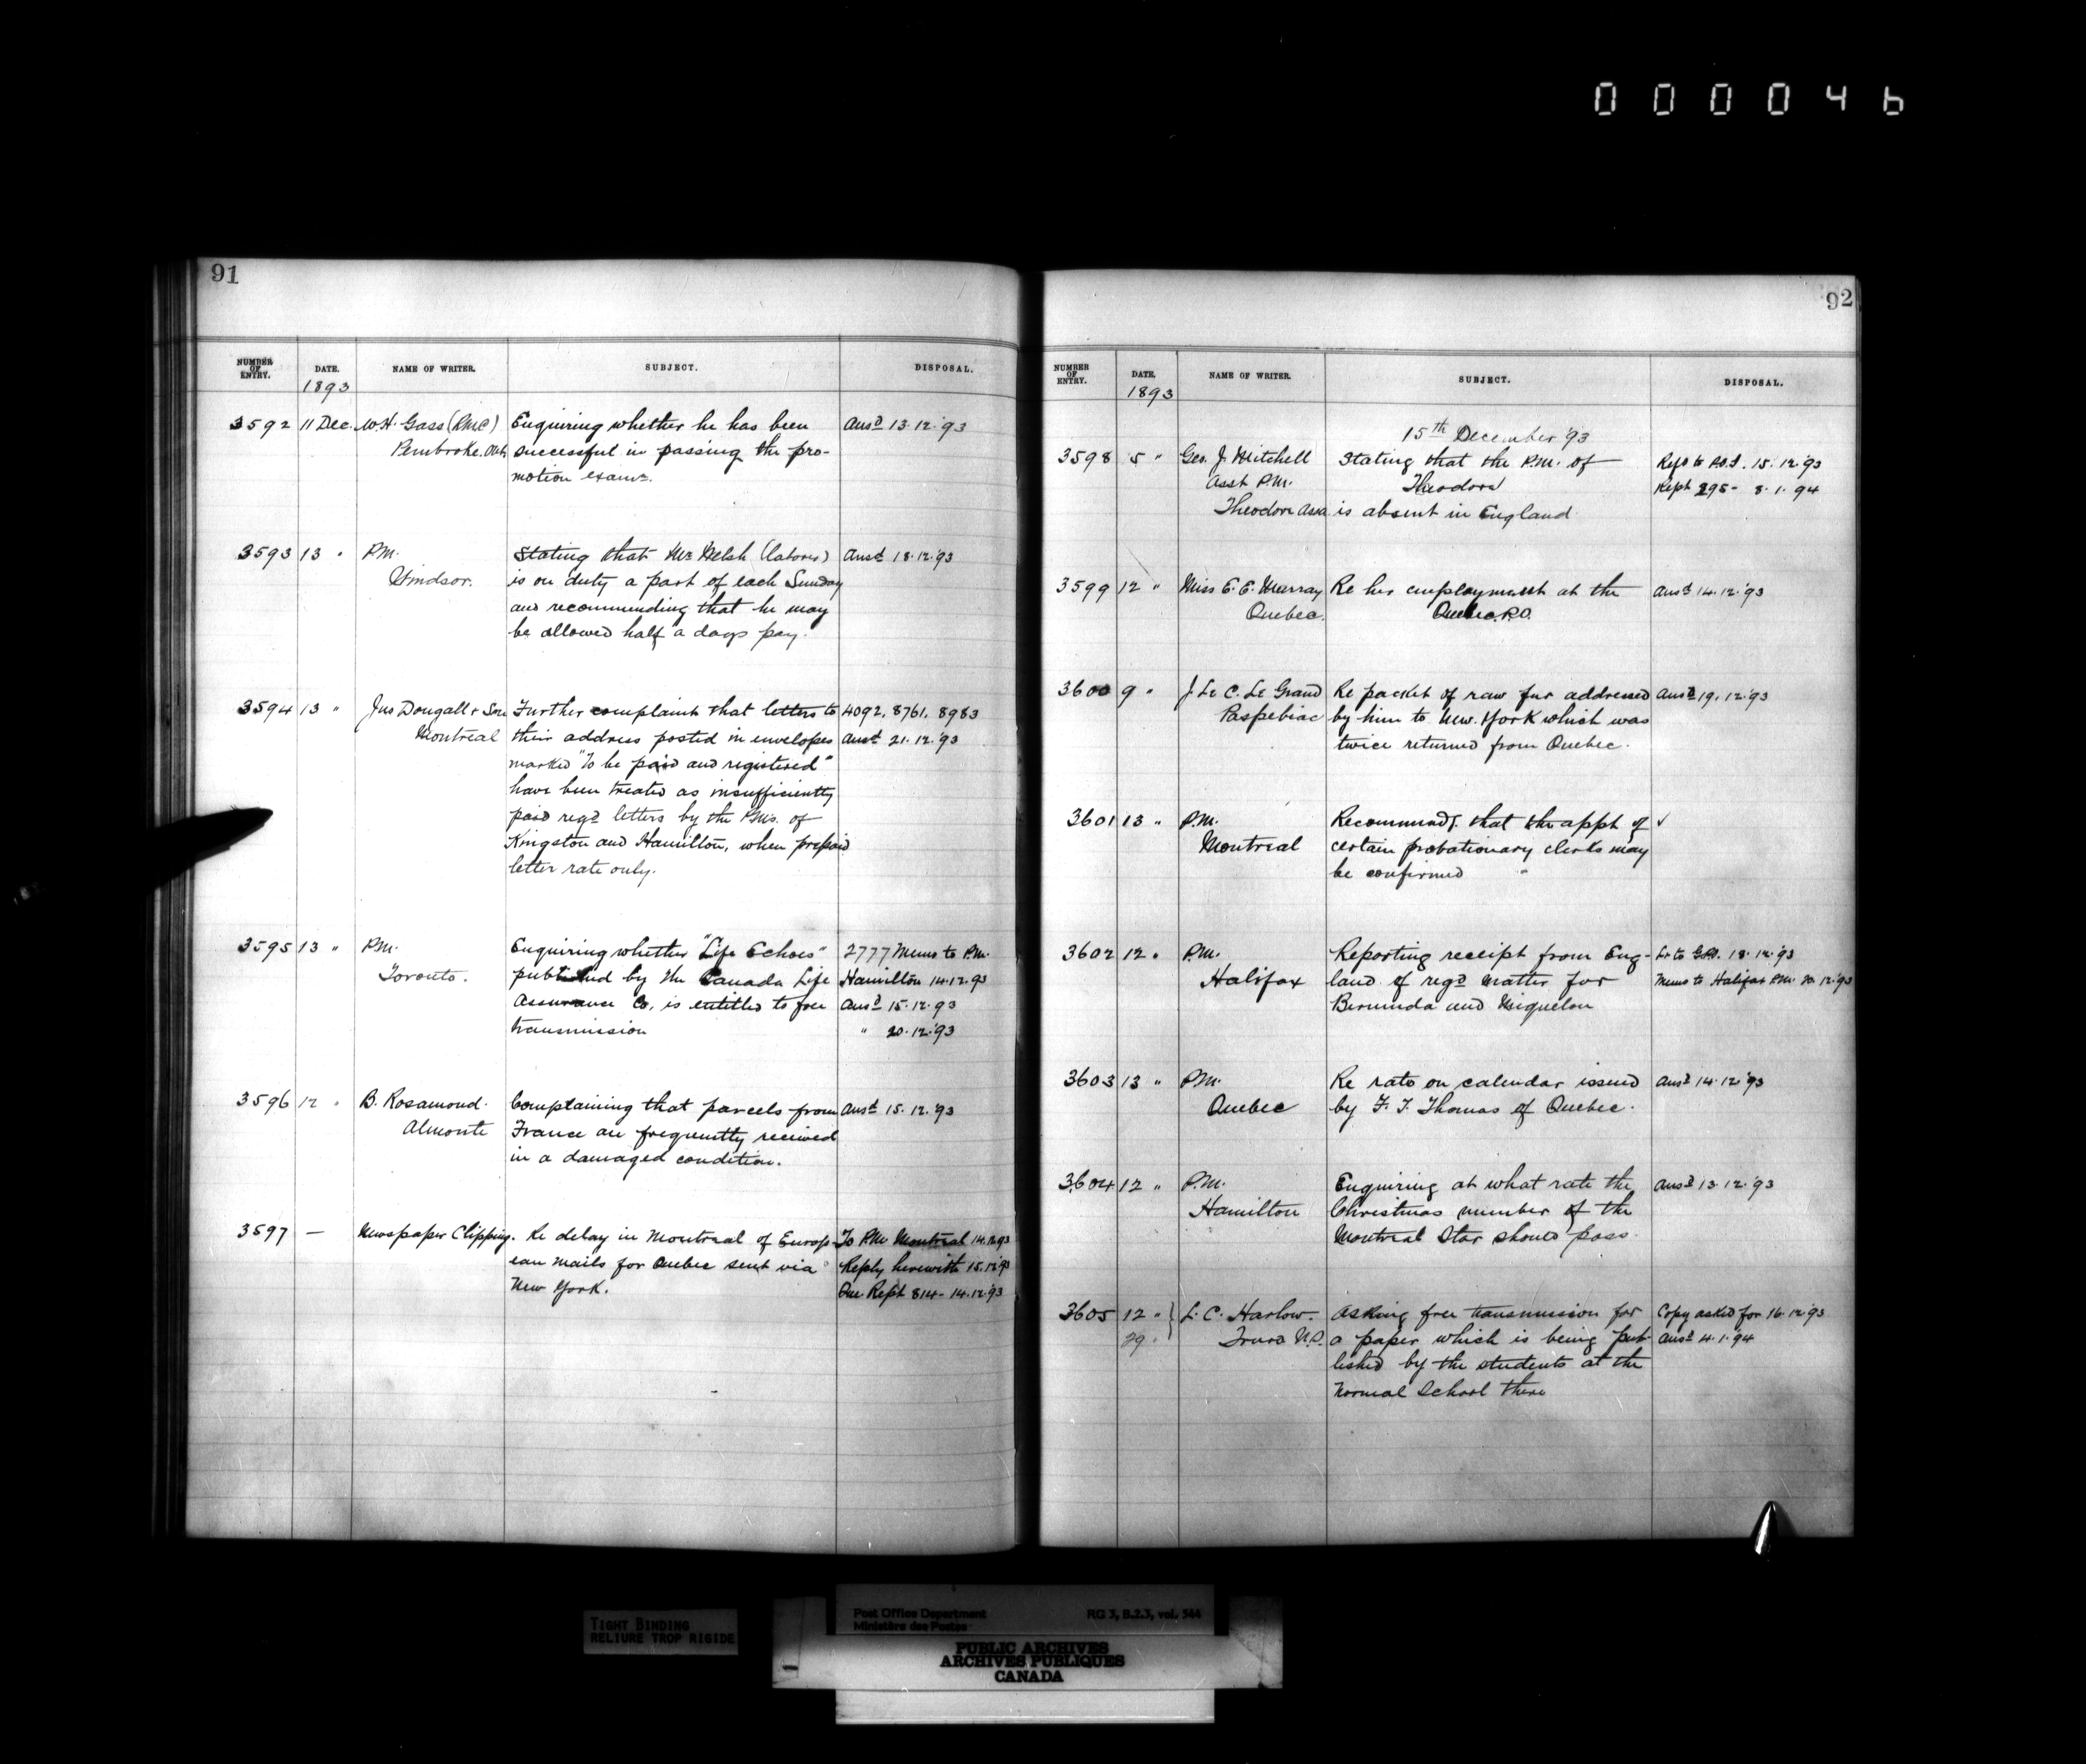 000046
91
NUMBER OF ENTRY. DATE. NAME OF WRITER. SUBJECT. DISPOSAL.
1893
3592 11 Dec. W.H. Gass (RMC) Enquiring whether he has been Ansd 13.12.'93
Pembroke. Ont. successful in passing the pro-
motion examn.
3593 13 " P.M. Stating that Mr Welsh (laborer) Ansd 18.12.'93
Windsor. is on duty a part of each Sunday
and recommending that he may
be allowed half a days pay.
3594 13 " Jno Dougall & Son Further complaint that letters to 4092, 8761, 8983
Montreal their address posted in envelopes Ansd 21.12.'93
marked "To be paid and registered"
have been treated as insufficiently
paid regd letters by the P.Ms. of
Kingston and Hamilton, when prepaid
letter rate only.
3595 13 " P.M. Enquiring whether "Life Echoes" 2777 Memo to P.M.
Toronto. published by the Canada Life Hamilton 14.12.93
Assurance Co, is entitled to free Ansd 15.12.93
transmission " 20.12.'93
3596 12 " B. Rosamond. Complaining that parcels from Ansd 15.12.'93
Almonte France are frequently received
in a damaged condition.
3597 — Newspaper Clipping. Re delay in Montreal of Europ- To P.M. Montreal 14.12.93
ean mails for Quebec sent via Reply herewith 15.12.'93
New York. Rept 814- 14.12.'93
92
NUMBER OF ENTRY. DATE. NAME OF WRITER. SUBJECT. DISPOSAL.
1893
15th December '93
3598 5 " Geo. J. Mitchell Stating that the P.M. of Refd to P.O.I. 15.12.'93
Asst P.M. Theodore Rept 295- 8.1.94
Theodore Assa is absent in England
3599 12 " Miss E.E. Murray Re her employment at the Ansd 14.12.'93
Quebec. Quebec P.O.
3600 9 " J. Le C. Le Grand Re packet of raw fur addressed Ansd 19.12.'93
Paspebiac by him to New York which was
twice returned from Quebec.
3601 13 " P.M. Recommends that the appt of ✓
Montreal certain probationary clerks may
be confirmed
3602 12 " P.M. Reporting receipt from Eng- Lr to G.P.O. 18.12.'93
Halifax land of regd matter for Memo to Halifax P.M. 20.12.'93
Bermuda and Miquelon
3603 13 " P.M. Re rate on calendar issued Ansd 14.12.'93
Quebec by F. T. Thomas of Quebec.
3604 12 " P.M. Enquiring at what rate the Ansd 13.12.'93
Hamilton Christmas number of the
Montreal Star should pass.
3605 12 " } L. C. Harlow. Asking free transmission for Copy asked for 16.12.'93
29 " Truro N.S. a paper which is being pub- Ansd 4.1.'94
lished by the students at the
Normal School there
TIGHT BINDING
RELIURE TROP RIGIDE
Post Office Department RG 3, B.2.3, vol. 544
Ministère des Postes
PUBLIC ARCHIVES
ARCHIVES PUBLIQUES
CANADA